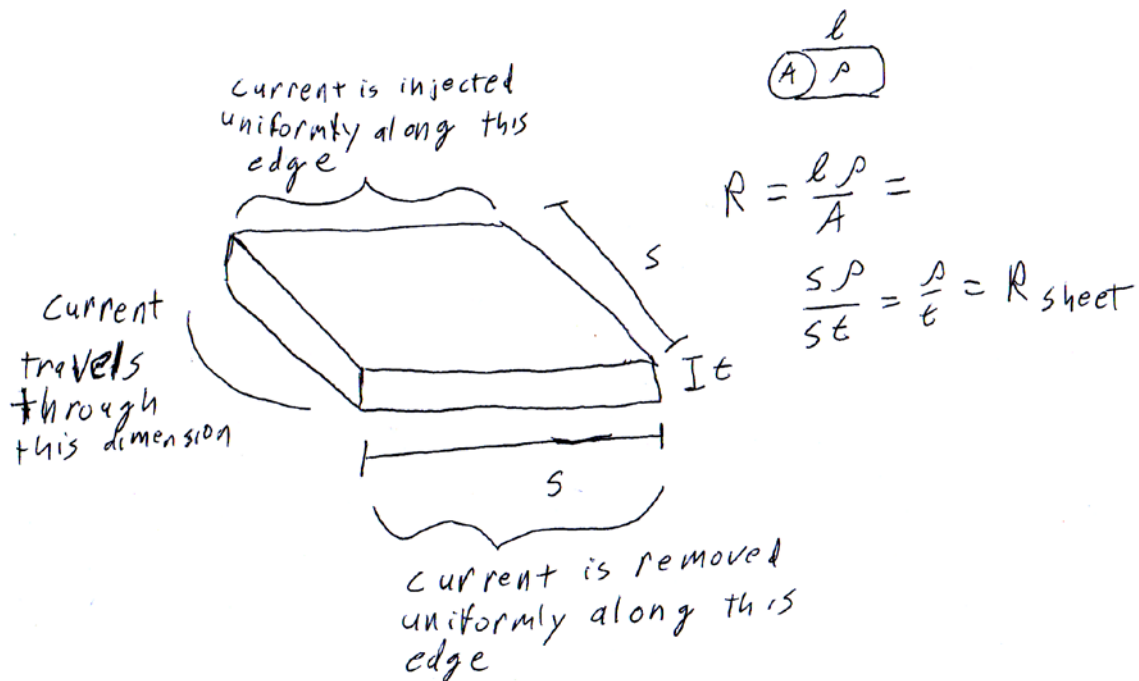 Current is injected
uniformly along this
edge
l
A ρ
R = lρ/A =
sρ/st = ρ/t = R sheet
s
t
Current
travels
through
this dimension
s
Current is removed
uniformly along this
edge